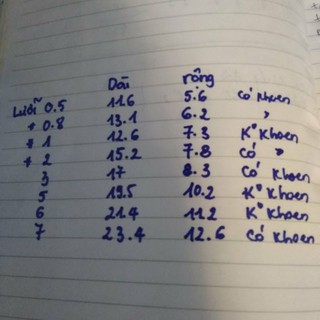 Dài rộng
Lưỡi 0.5 11.6 5.6 có khoen
" 0.8 13.1 6.2 "
" 1 12.6 7.3 K° Khoen
" 2 15.2 7.8 Có "
3 17 8.3 Có Khoen
5 19.5 10.2 K° Khoen
6 21.4 11.2 K° Khoen
7 23.4 12.6 Có Khoen